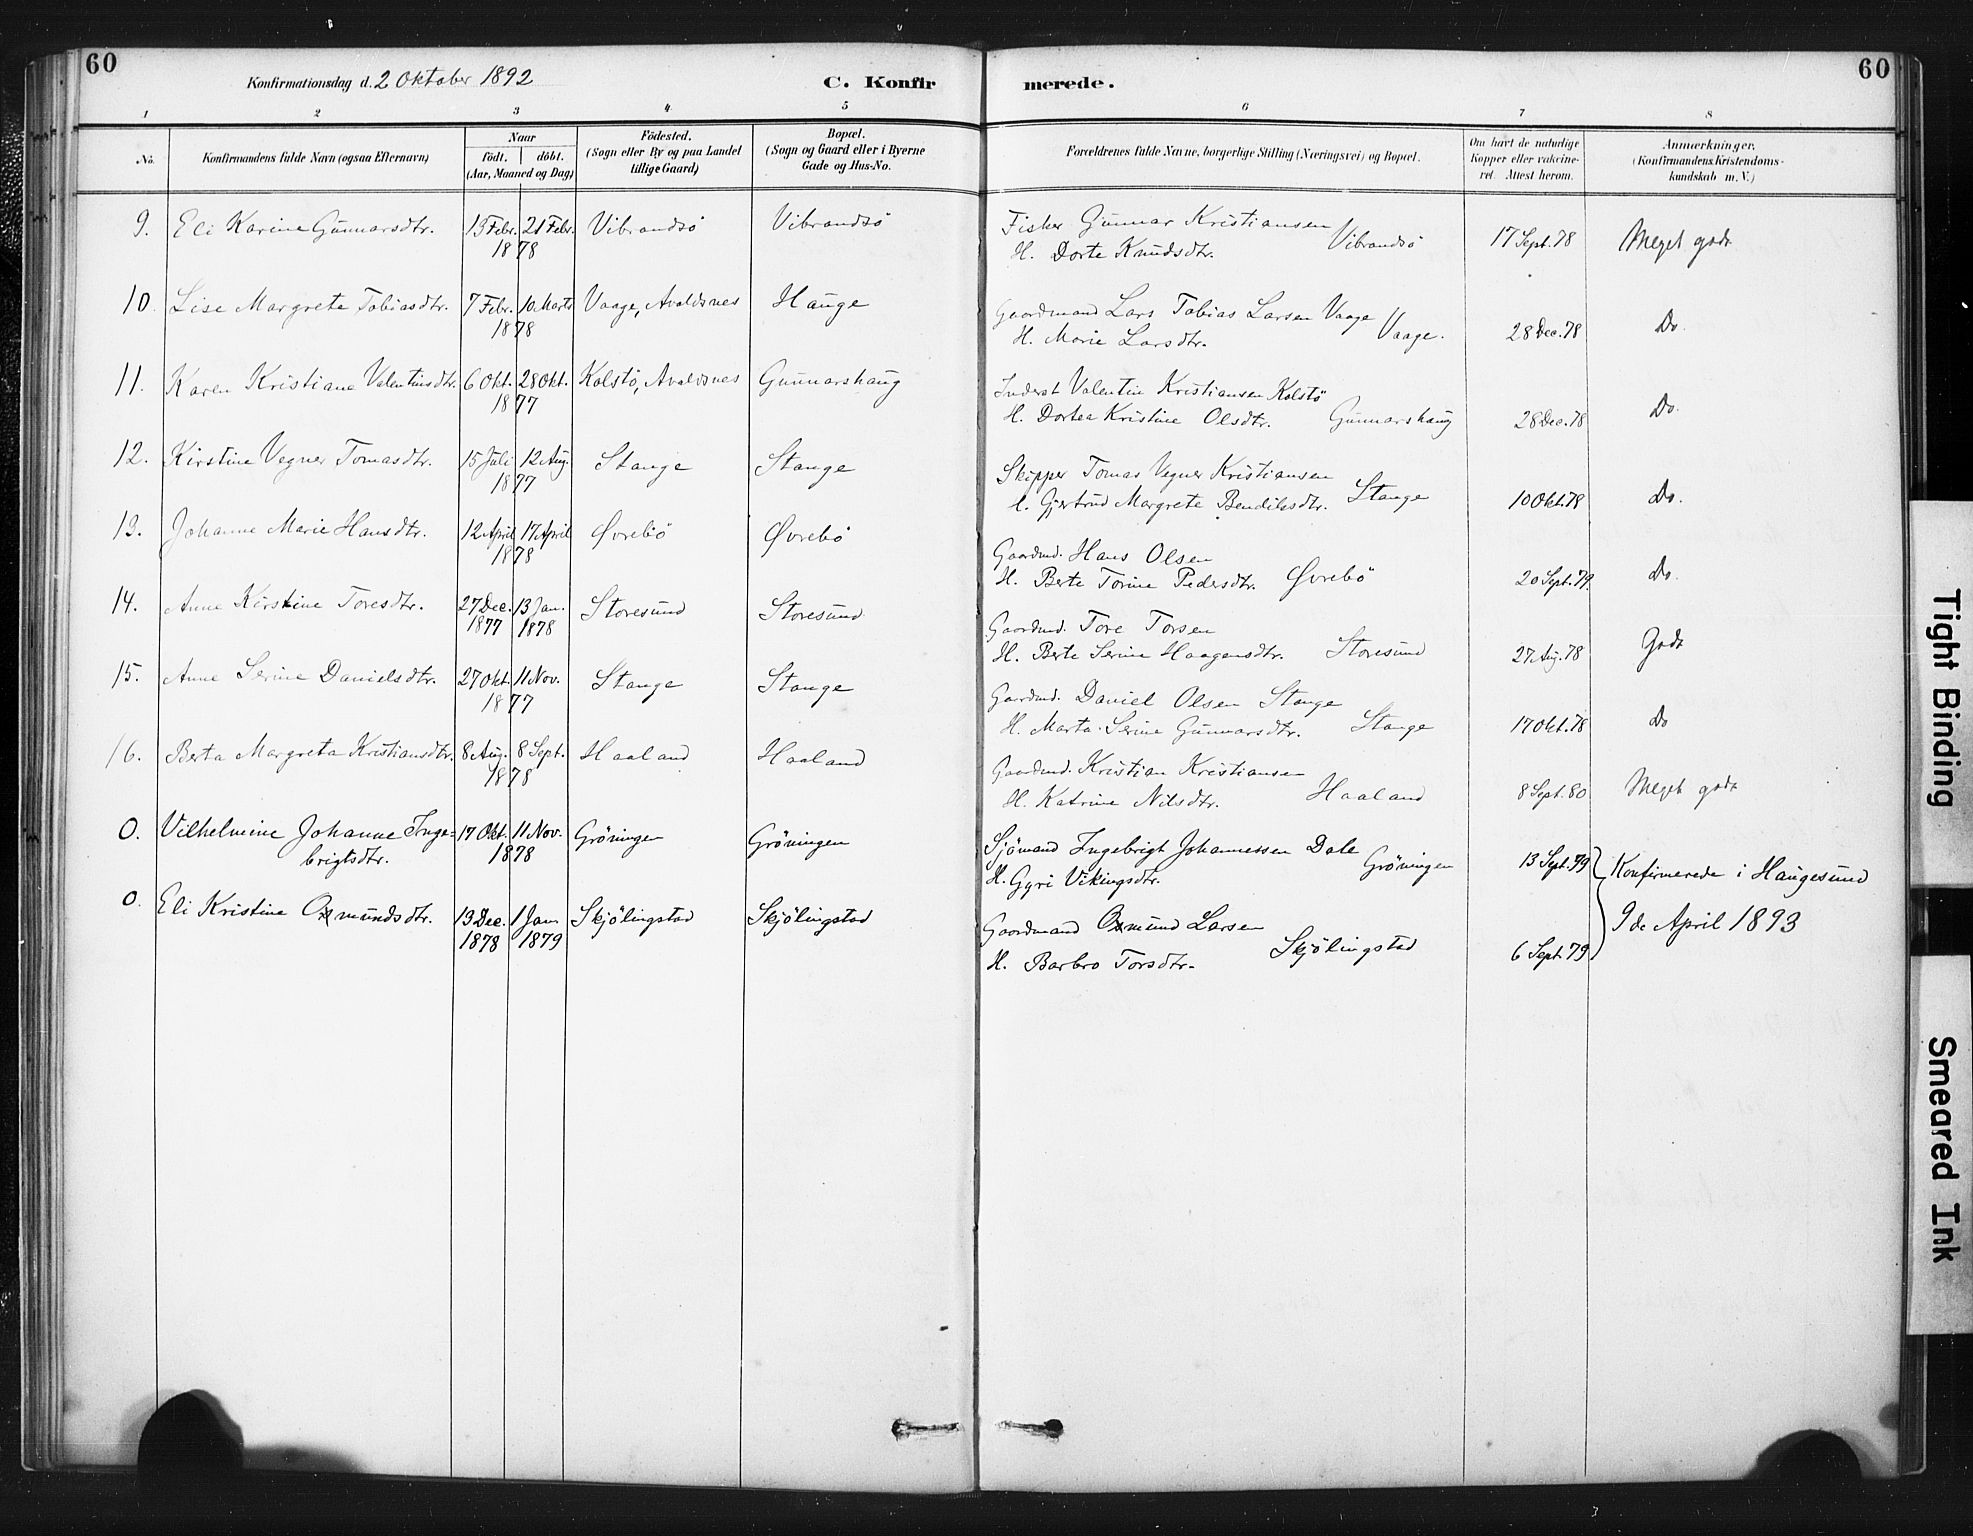 60
Konfirmationsdag d. 2 Oktober 1892
C. Konfirmerede.
60
1 2 3 4 5 6 7 8
No. Konfirmandens fulde Navn (ogsaa Efternavn) Naar födt. döbt. (Aar, Maaned og Dag) Födested. (Sogn eller By og paa Landet tillige Gaard) Bopæl. (Sogn og Gaard eller i Byerne Gade og Hus-No. Forældrenes fulde Navne, borgerlige Stilling (Næringsvei) og Bopæl. Om havt de naturlige Kopper eller vakcineret. Attest herom. Anmærkninger, (Konfirmandens Kristendomskundskab m. V.)
9. Eli Karine Gunnarsdtr. 13 Febr. 21 Febr. Vibrandsö Vibrandsö Fisker Gunnar Kristiansen Vibrandsö 17 Sept. 78 Meget godt
1878 H. Dorte Knudsdtr.
10. Lise Margrete Tobiasdtr. 7 Febr. 10 Marts Vaage, Avaldsnes Hauge Gaardmand Lars Tobias Larsen Vaage Vaage. 28 Dec. 78 Do.
1878 H. Marie Larsdtr.
11. Karen Kristiane Valentinsdtr. 6 Okt. 28 Okt. Kolstö, Avaldsnes Gunnarshaug Inderst Valentin Kristiansen Kolstö
1877 H. Dortea Kristine Olsdtr. Gunnarshaug 28 Dec. 78 Do.
12. Kirstine Vegner Tomasdtr. 15 Juli 12 Aug. Stange Stange Skipper Tomas Vegner Kristiansen
1877 H. Gjertrud Margrete Bendiksdtr. Stange 10 Okt. 78 Do.
13. Johanne Marie Hansdtr. 12 April 17 April Øvrebö Øvrebö Gaardmd. Hans Olsen
1878 H. Berte Torine Pedersdtr. Øvrebö 20 Sept. 79. Do.
14. Anne Kirstine Toresdtr. 27 Dec. 13 Jan. Storesund Storesund Gaardmd. Tore Torsen
1877 1878 H. Berte Serine Haagensdtr. Storesund 27 Aug. 78 Godt
15. Anne Serine Danielsdtr. 27 Okt. 11 Nov. Stange Stange Gaardmd. Daniel Olsen Stange
1877 H. Marta Serine Gunnarsdtr. Stange 17 Okt. 78 Do
16. Berta Margreta Kristiansdtr. 8 Aug. 8 Sept. Haaland Haaland Gaardmd. Kristian Kristiansen
1878 H. Katrine Nilsdtr. Haaland 8 Sept. 80 Meget godt
0. Vilhelmine Johanne Inge= 17 Okt. 11 Nov. Gröningen Gröningen Sjömand Ingebrigt Johannessen Dale Gröningen 13 Sept. 79 Konfirmerede i Haugesund
brigtsdtr. 1878 H. Gyri Vikingsdtr.
0. Eli Kristine Osmundsdtr. 13 Dec. 1 Jan. Skjölingstad Skjölingstad Gaardmand Osmund Larsen 9de April 1893
1878 1879 H. Barbro Torsdtr. Skjölingstad 6 Sept. 79
Tight Binding
Smeared Ink